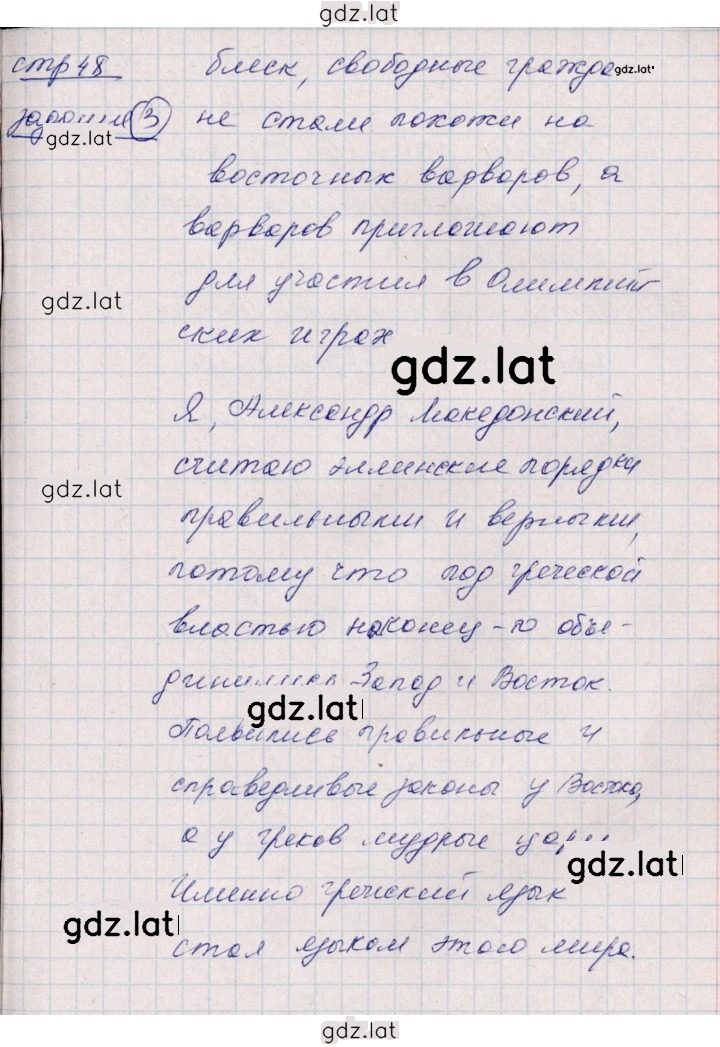 gdz.lat
стр 48 блеск, свободные гражда gdz.lat
задание 3 не стали похожи на
gdz.lat
восточных варваров, а
варваров приглашают
для участия в Олимпий
gdz.lat
ских играх
gdz.lat
Я, Александр Македонский,
считаю эллинские порядки
gdz.lat
правильными и верными,
потому что под греческой
властью наконец-то объе-
динились Запад и Восток.
gdz.lat
Появились правильные и
справедливые законы у Востока,
а у греков мудрые цари
gdz.lat
Именно греческий язык
gdz.lat
стал языком этого мира.
gdz.lat